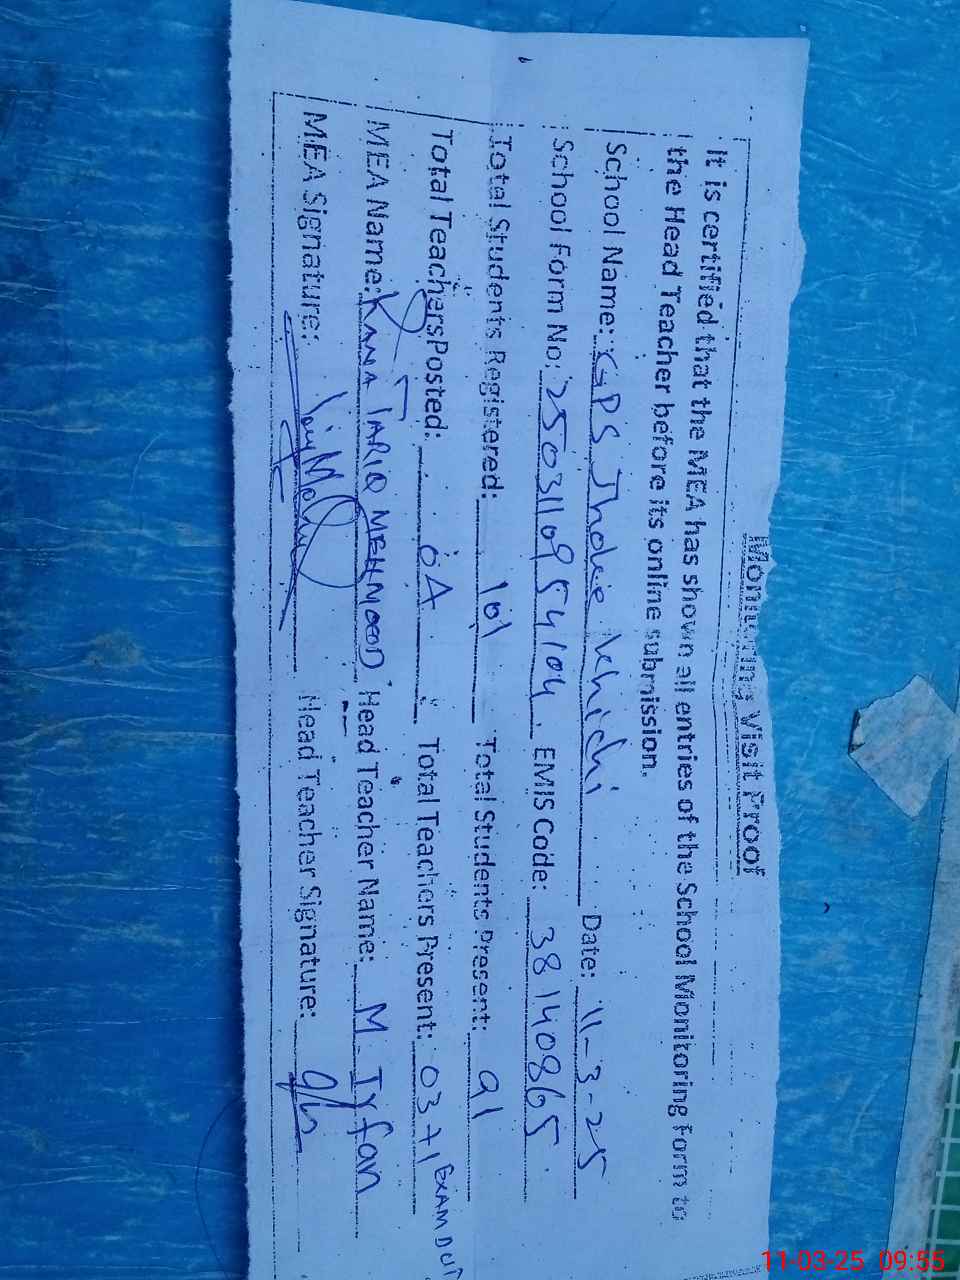 Monitoring Visit Proof
It is certified that the MEA has shown all entries of the School Monitoring Form to
the Head Teacher before its online submission.
School Name: GPS Jhodie Khichi Date: 11-3-25
School Form No: 25031109 54104 EMIS Code: 38140865
Total Students Registered: 101 Total Students Present: 91
Total Teachers Posted: 04 Total Teachers Present: 03+1 EXAM DUT
MEA Name: RANA TARIQ MEHMOOD Head Teacher Name: M. Irfan
MEA Signature: Head Teacher Signature:
11-03-25 09:55